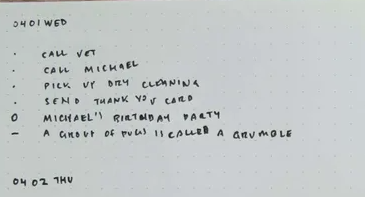 0401 WED
· CALL VET
· CALL MICHAEL
· PICK UP DRY CLEANING
· SEND THANK YOU CARD
O MICHAEL'S BIRTHDAY PARTY
– A GROUP OF PUGS IS CALLED A GRUMBLE
0402 THU